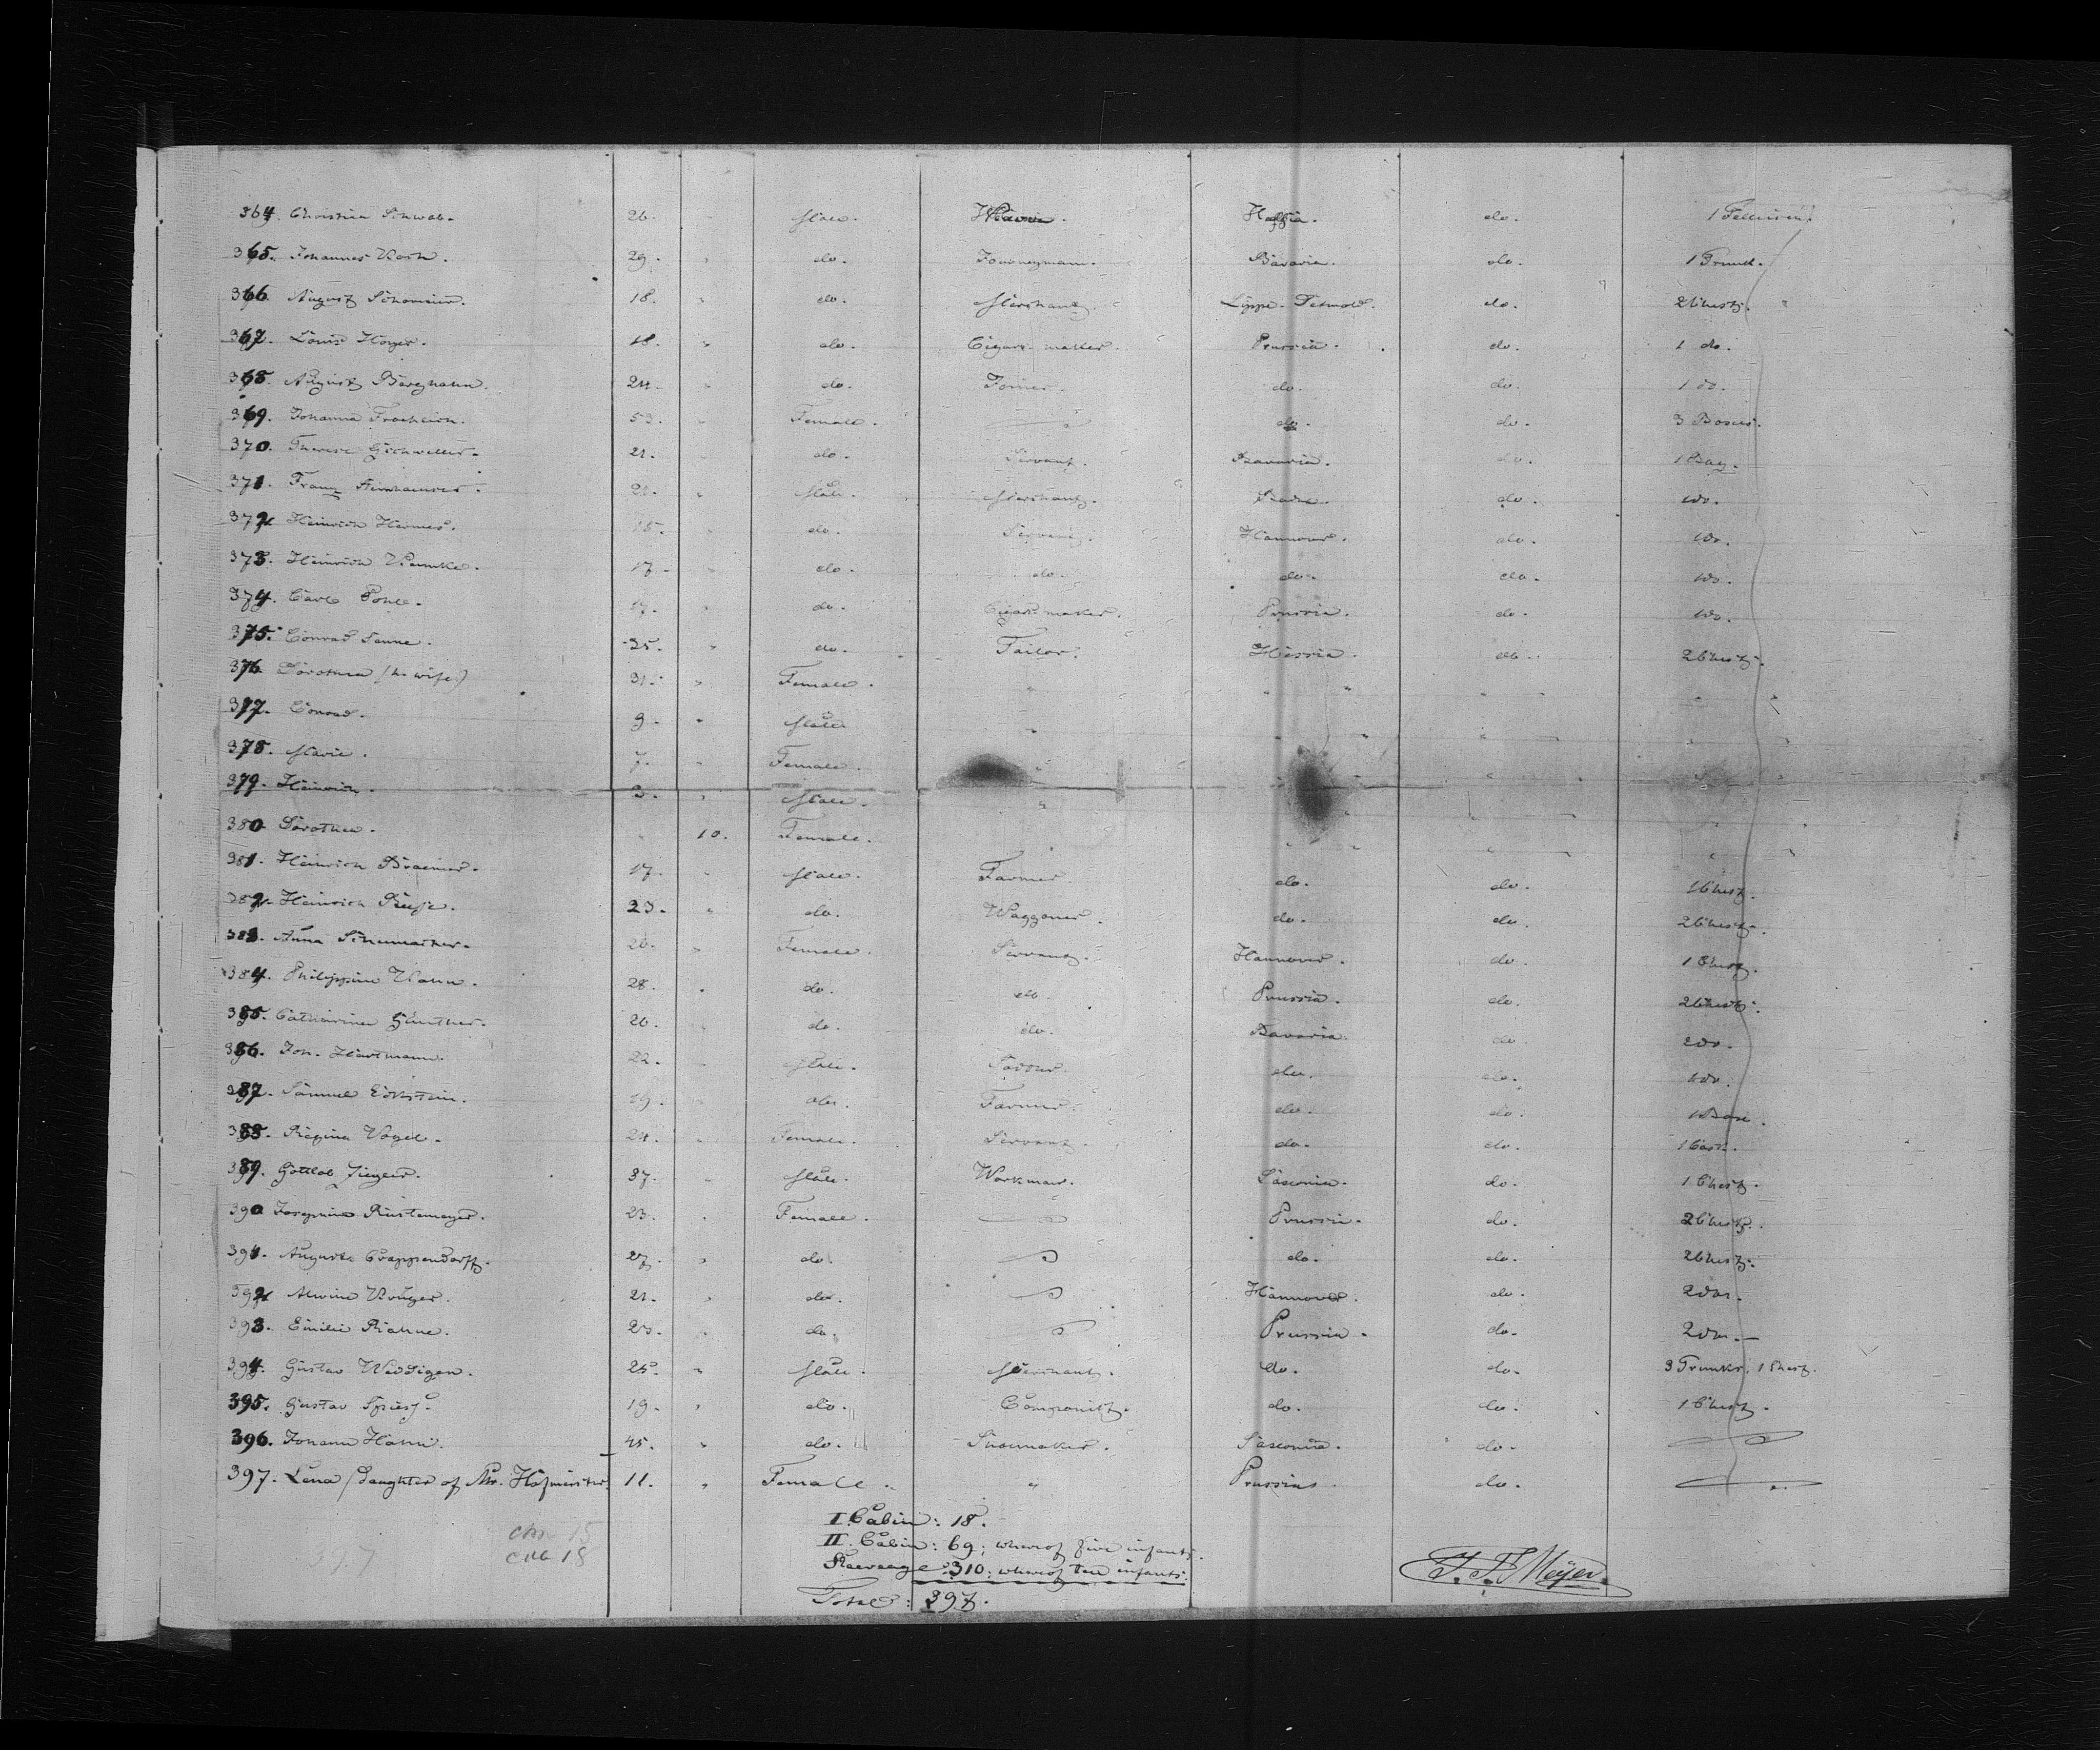 364. Christian Schwab. 26. " Male. Weaver. Hassia. do. 1 Felleisen.
365. Johannes Koch. 29. " do. Journeyman. Bavaria. do. 1 Trunk.
366. August Schomeier. 18. " do. Merchant. Lippe-Detmold. do. 2 Chests.
367. Louis Hoyer. 18. " do. Cigar maker. Prussia. do. 1 do.
368. August Berghahn. 24. " do. Joiner. do. do. 1 do.
369. Johanna 53. " Female. do. do. 3 Boxes.
370. Therese 21. " do. Servant. Bavaria. do. 1 Bag.
371. Franz 21. " Male. Merchant. Baden. do. 1 do.
372. Heinrich Hermes. 15. " do. Servant. Hannover. do. 1 do.
373. Heinrich 17. " do. do. do. do. 1 do.
374. Carl Pohle. 17. " do. Cigar maker. Prussia. do. 1 do.
375. Conrad Tanne. 35. " do. Tailor. Hessia. do. 2 Chests.
376. Dorothea (his wife) 31. " Female. " " " " " "
377. Conrad. 9. " Male " " " " " "
378. Marie. 7. " Female. " " " " " "
379. Heinrich. 3. " Male. " " " " " "
380. Dorothea. " 10. Female. " " " " "
381. Heinrich Braemer. 17. " Male. Farmer. do. do. 1 Chest.
382. Heinrich 23. " do. Waggoner. do. do. 2 Chests.
383. Anna Schumacher. 20. " Female. Servant. Hannover. do. 1 Chest.
384. Philippine Hahn. 28. " do. do. Prussia. do. 2 Chests.
385. Catharina Günther. 20. " do. do. Bavaria. do. 2 do.
386. Joh. Hartmann. 22. " Male. do. do. 1 do.
387. Samuel Eckstein. 19. " do. Farmer. do. do. 1 Box.
388. Regina Vogel. 24. " Female. Servant. do. do. 1
389. Gottlob Zieger. 37. " Male. Workman. Saxonia. do. 1 Chest.
390. Josephine Rüstemeyer. 23. " Female. Prussia. do. 2 Chests.
391. Auguste Crappendorff. 27. " do. do. do. 2 Chests.
392. Alwine Krüger. 21. " do. Hannover. do. 2 do.
393. Emilie Rahne. 23. " do. Prussia. do. 2 do.
394. Gustav Weddigen. 25. " Male. Merchant. do. do. 3 Trunks, 1 Chest.
395. Gustav Spiess. 19. " do. do. do. 1 Chest.
396. Johann Hahn. 45. " do. Shoemaker. Saxonia. do.
397. Lena (daughter of Mr. Hofmeister) 11. " Female. " Prussia. do.
I Cabin: 18.
II. Cabin: 69; whereof five infants.
Steerage: 310; whereof ten infants.
Total: 397.
397
15
18
Meyer.